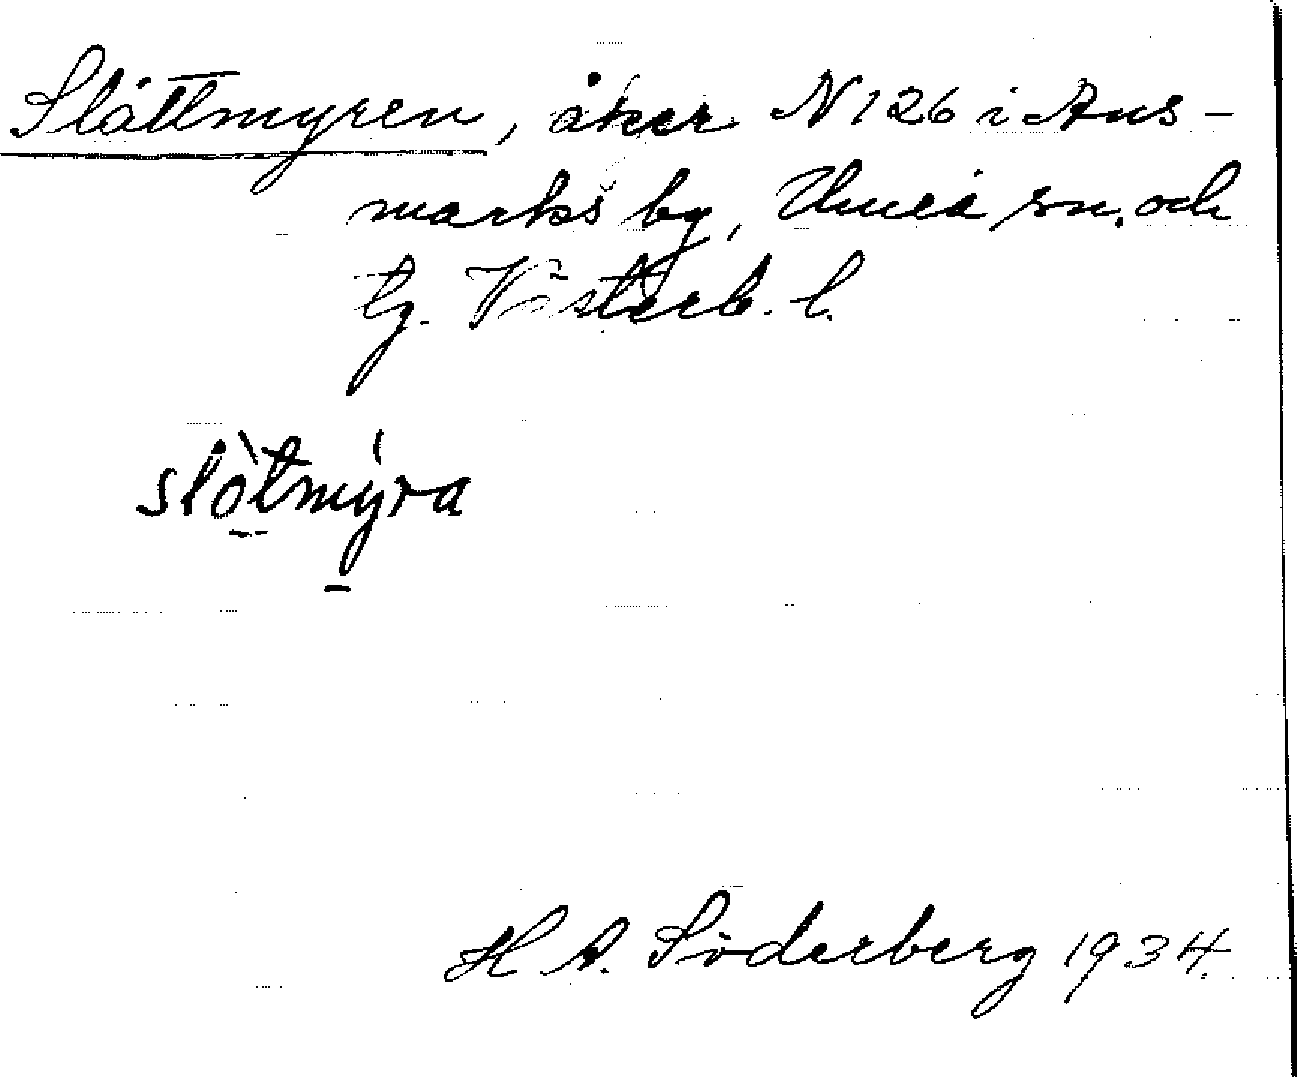 Slåttmyren, åker N 126 i Ans-
marks by, Umeå sn. och
tg. Västerb. l.
slò̱tmý̱ra
H. A. Söderberg 1934.